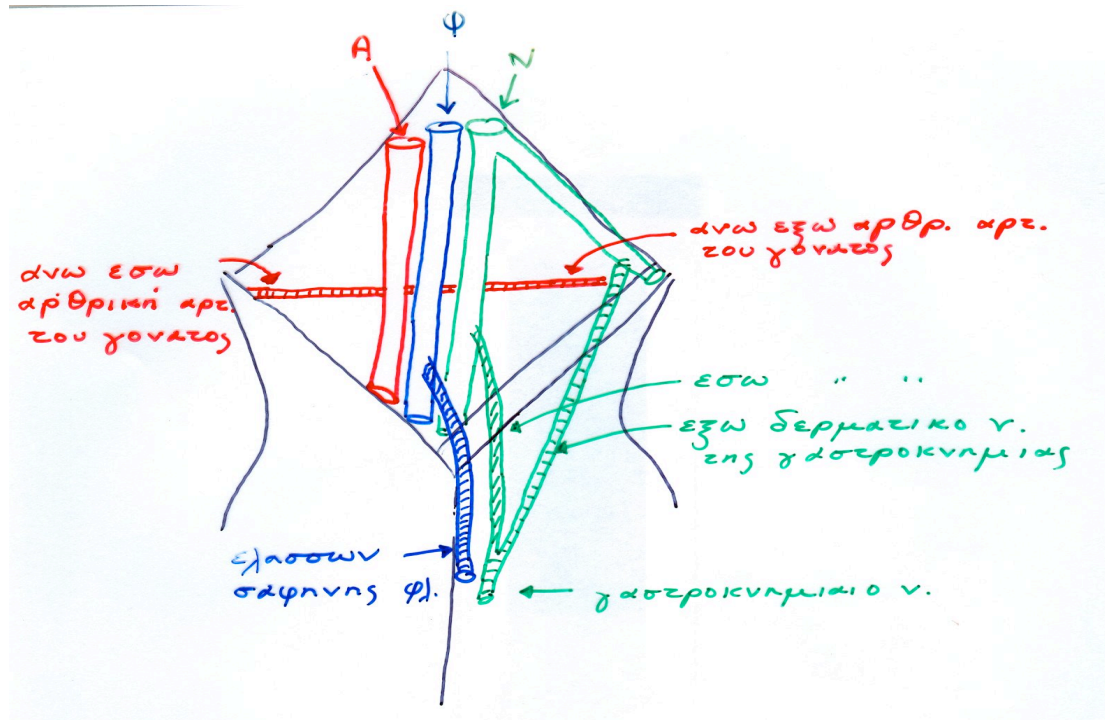 Φ
Α
Ν
ανω εξω αρθρ. αρτ.
του γόνατος
άνω έσω
αρθρική αρτ.
του γονατος
εσω " "
εξω δερματικο ν.
της γαστροκνημιας
ελασσων
σαφηνης φλ.
γαστροκνημιαιο ν.